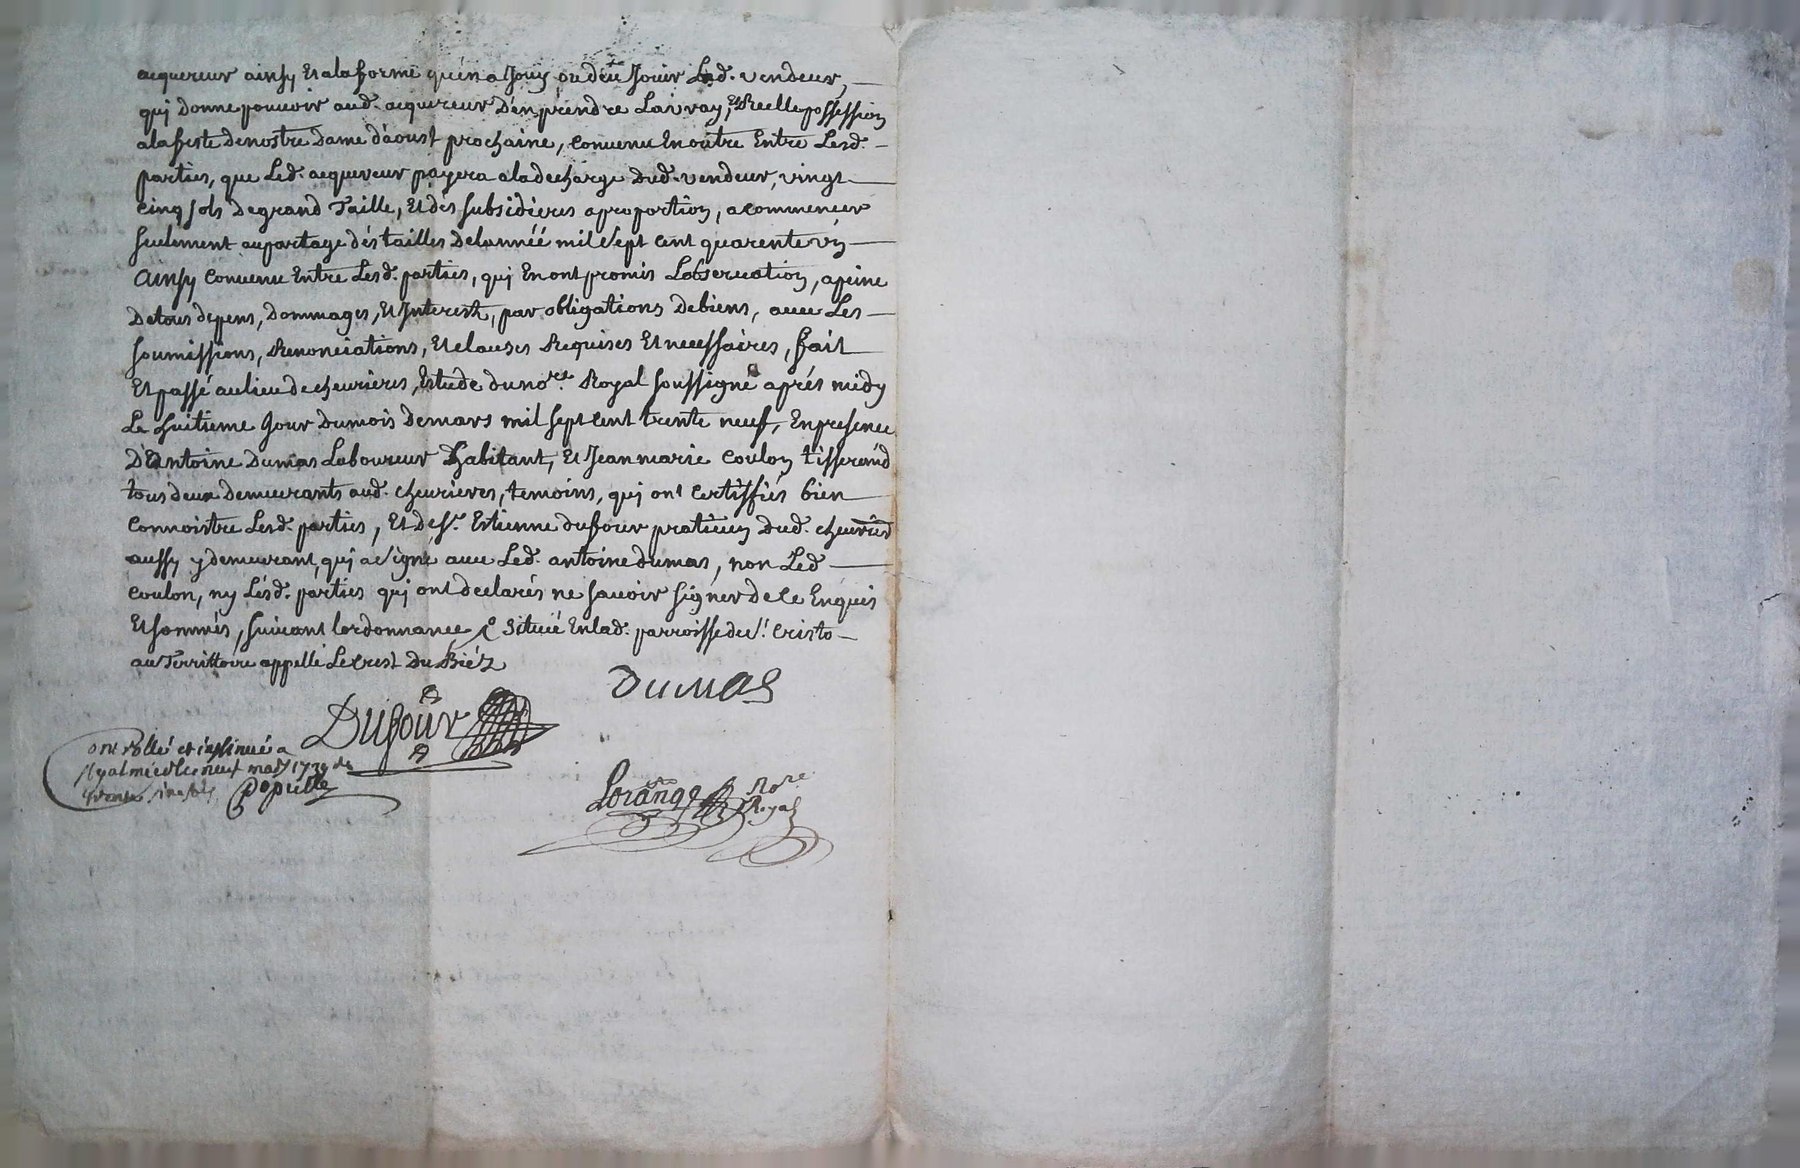 acquereur ainsy Et alaforme qu'en a Jouy ou deu Jouir Led. vendeur,
quj Donne pouvoir aud. acquereur D'en prendre La vray, Et Reelle possession
a la feste de nostre Dame d'aoust prochaine, convenu En outre Entre Lesd.
parties, que Led. acquereur payera a la decharge Dud. vendeur, vingt
cinq sols De grand Taille, Et des subsidieres a proportion, a commencer
seulement au partage dés tailles De lannéé mil sept cent quarente
Ainsy convenu Entre Lesd. parties, quj En ont promis Lobseruation, a peine
De tous depens, Dommages, Et Interests, par obligations De biens, auec Les
soumissions, Renonciations, Et clauses Requises Et necessaires, fait
Et passé au lieu de cheurieres, Estude du no.re Royal soussigné aprés midy
Le huitieme Jour Du mois de mars mil sept cent trente neuf, En presence
D'Antoine Dumas Laboureur habitant, Et Jean marie Coulon tisserand
tous deux demeurants aud. cheurieres, temoins, quj ont certiffiés bien
connoistre Lesd. parties, Et De S.r Estienne dufour praticien Dud. cheurieres
aussy y demeurant, quj a signé auec Led. antoine dumas, non Led
coulon, ny Lésd. parties quj ont declarés ne sauoir signer de ce Enquis
Et sommés, suiuant lordonnance situé En lad. parroisse de S.t Cristo
au Territtoire appellé Le crest Du Biéz
Dumas
Dufour
ontrollé et insinué a
St galmier le neuf mars 1739
Populle
Lorange No.re
Royal